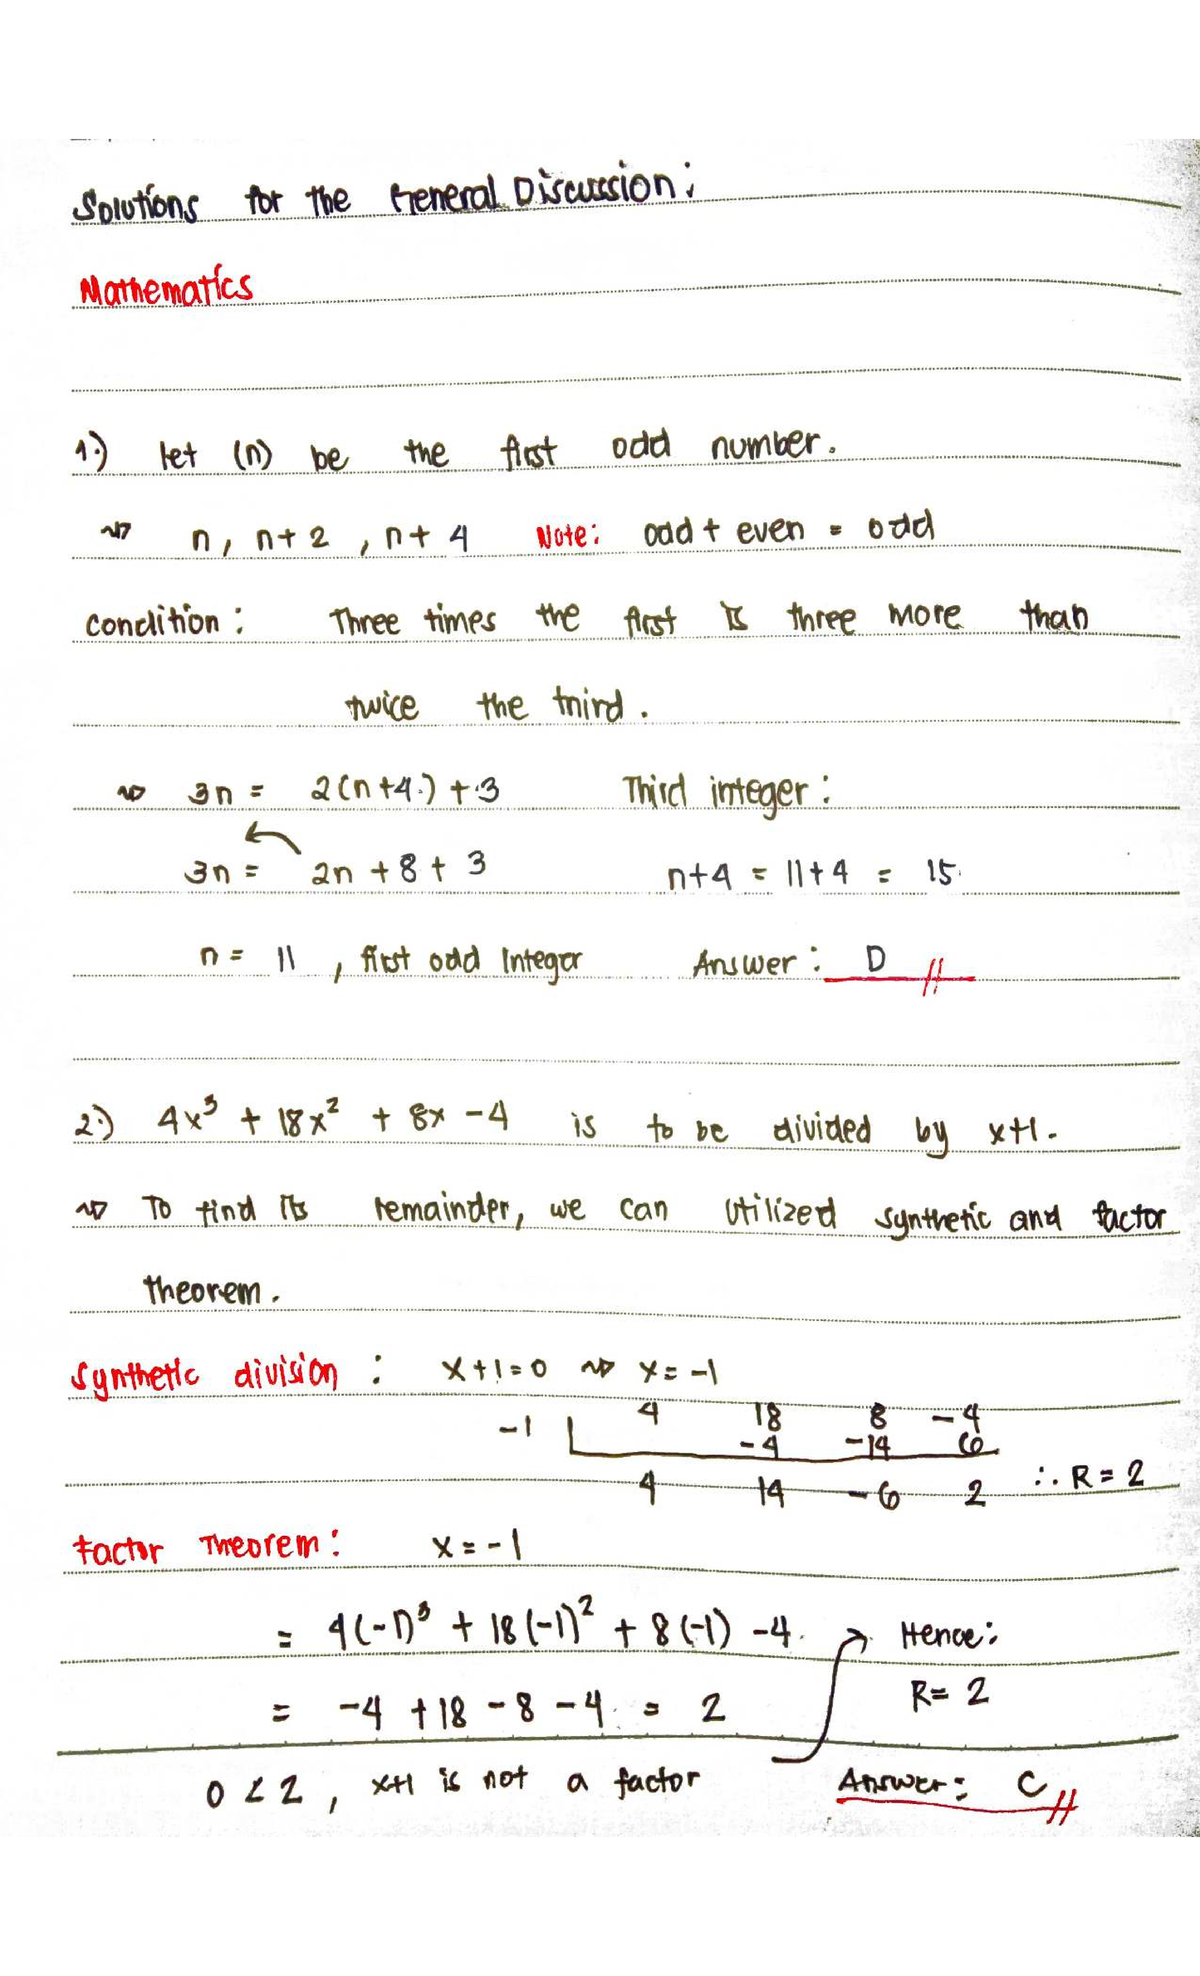 Solutions for the General Discussion:
Mathematics
1.) let (n) be the first odd number.
⇝ n, n+2, n+4 Note: odd + even = odd
condition: Three times the first is three more than
twice the third.
⇝ 3n = 2(n+4) + 3 Third integer:
3n = 2n + 8 + 3 n+4 = 11+4 = 15
n = 11, first odd Integer Answer: D
2.) 4x³ + 18x² + 8x - 4 is to be divided by x+1.
⇝ To find its remainder, we can utilized synthetic and factor
theorem.
Synthetic division: x+1=0 ⇝ x=-1
-1 | 4 18 8 -4
-4 -14 6
4 14 -6 2 ∴ R = 2
Factor Theorem: x = -1
= 4(-1)³ + 18(-1)² + 8(-1) - 4 → Hence:
= -4 + 18 - 8 - 4 = 2 R = 2
0 < 2, x+1 is not a factor Answer: C